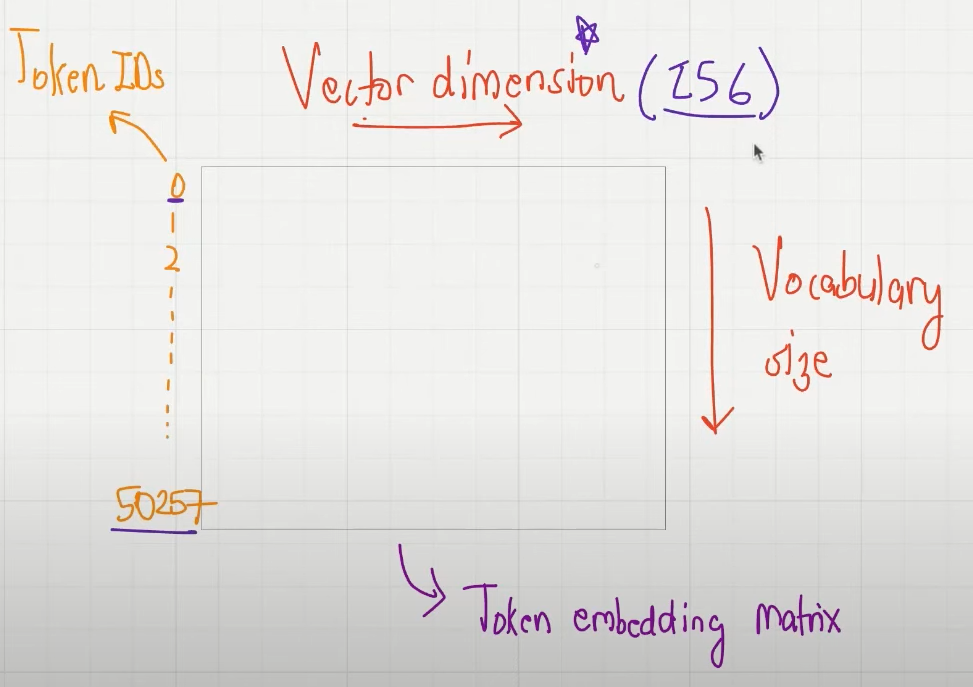 Token IDs
Vector dimension (256)
0
1
2
50257
Vocabulary
size
Token embedding matrix